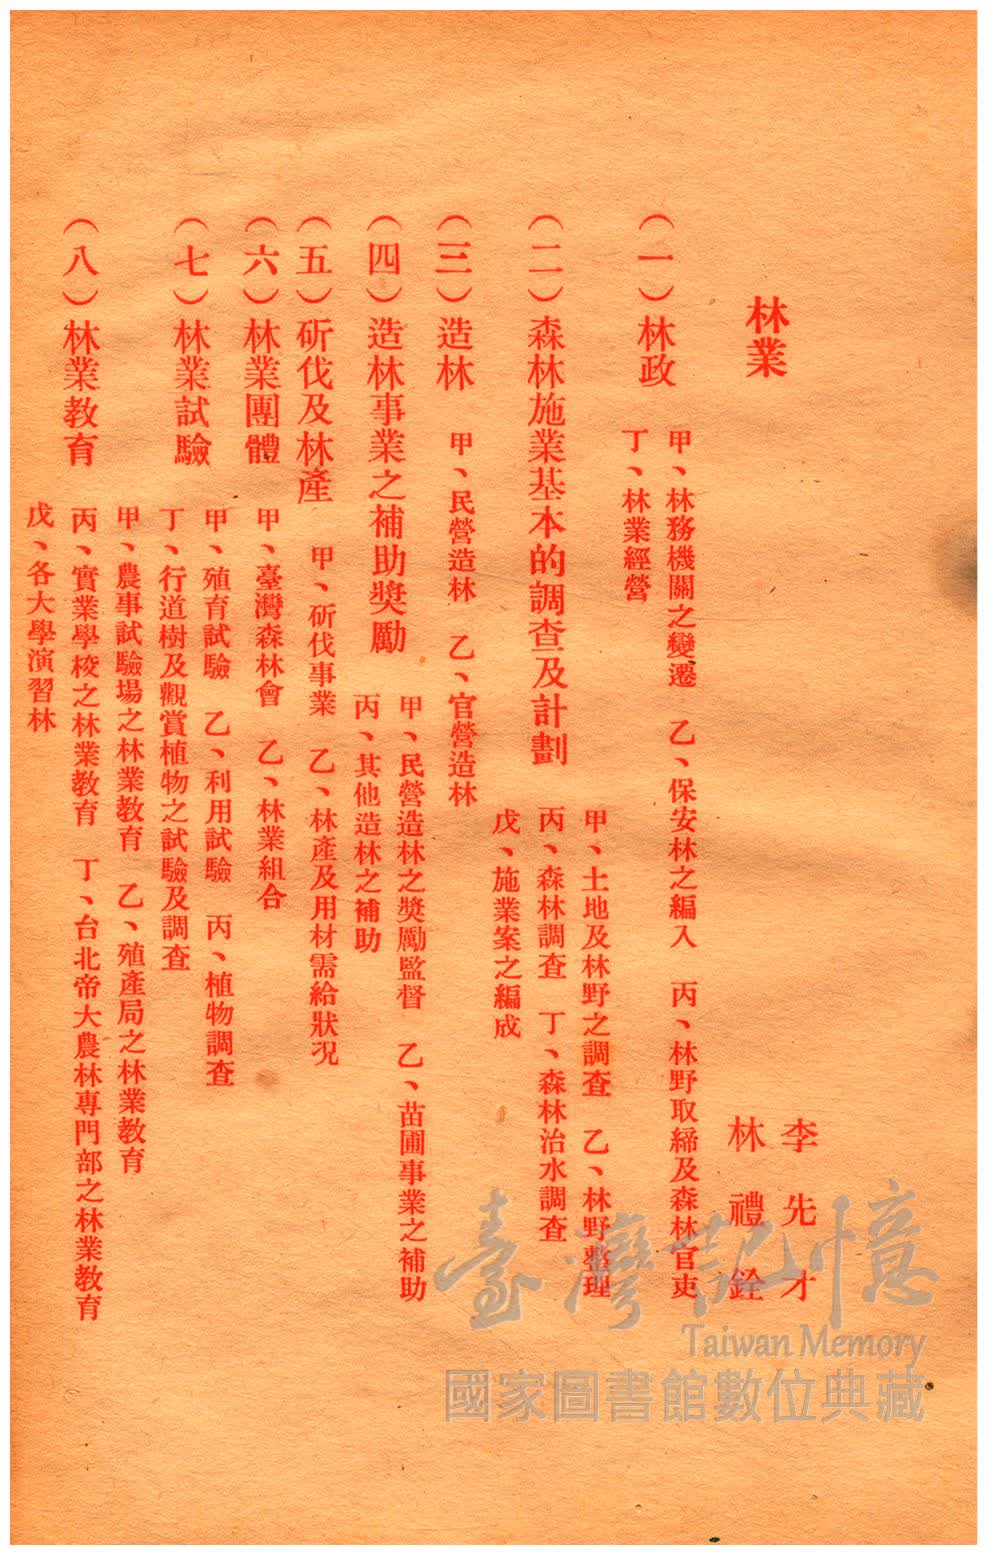 林業
李先才
林禮銓
（一）林政
甲、林務機關之變遷　乙、保安林之編入　丙、林野取締及森林官吏
丁、林業經營
（二）森林施業基本的調查及計劃
甲、土地及林野之調查　乙、林野整理
丙、森林調查　丁、森林治水調查
戊、施業案之編成
（三）造林
甲、民營造林　乙、官營造林
（四）造林事業之補助獎勵
甲、民營造林之獎勵監督　乙、苗圃事業之補助
丙、其他造林之補助
（五）斫伐及林產
甲、斫伐事業　乙、林產及用材需給狀況
（六）林業團體
甲、臺灣森林會　乙、林業組合
（七）林業試驗
甲、殖育試驗　乙、利用試驗　丙、植物調查
丁、行道樹及觀賞植物之試驗及調查
（八）林業教育
甲、農事試驗場之林業教育　乙、殖產局之林業教育
丙、實業學校之林業教育　丁、台北帝大農林專門部之林業教育
戊、各大學演習林
臺灣記憶
Taiwan Memory
國家圖書館數位典藏